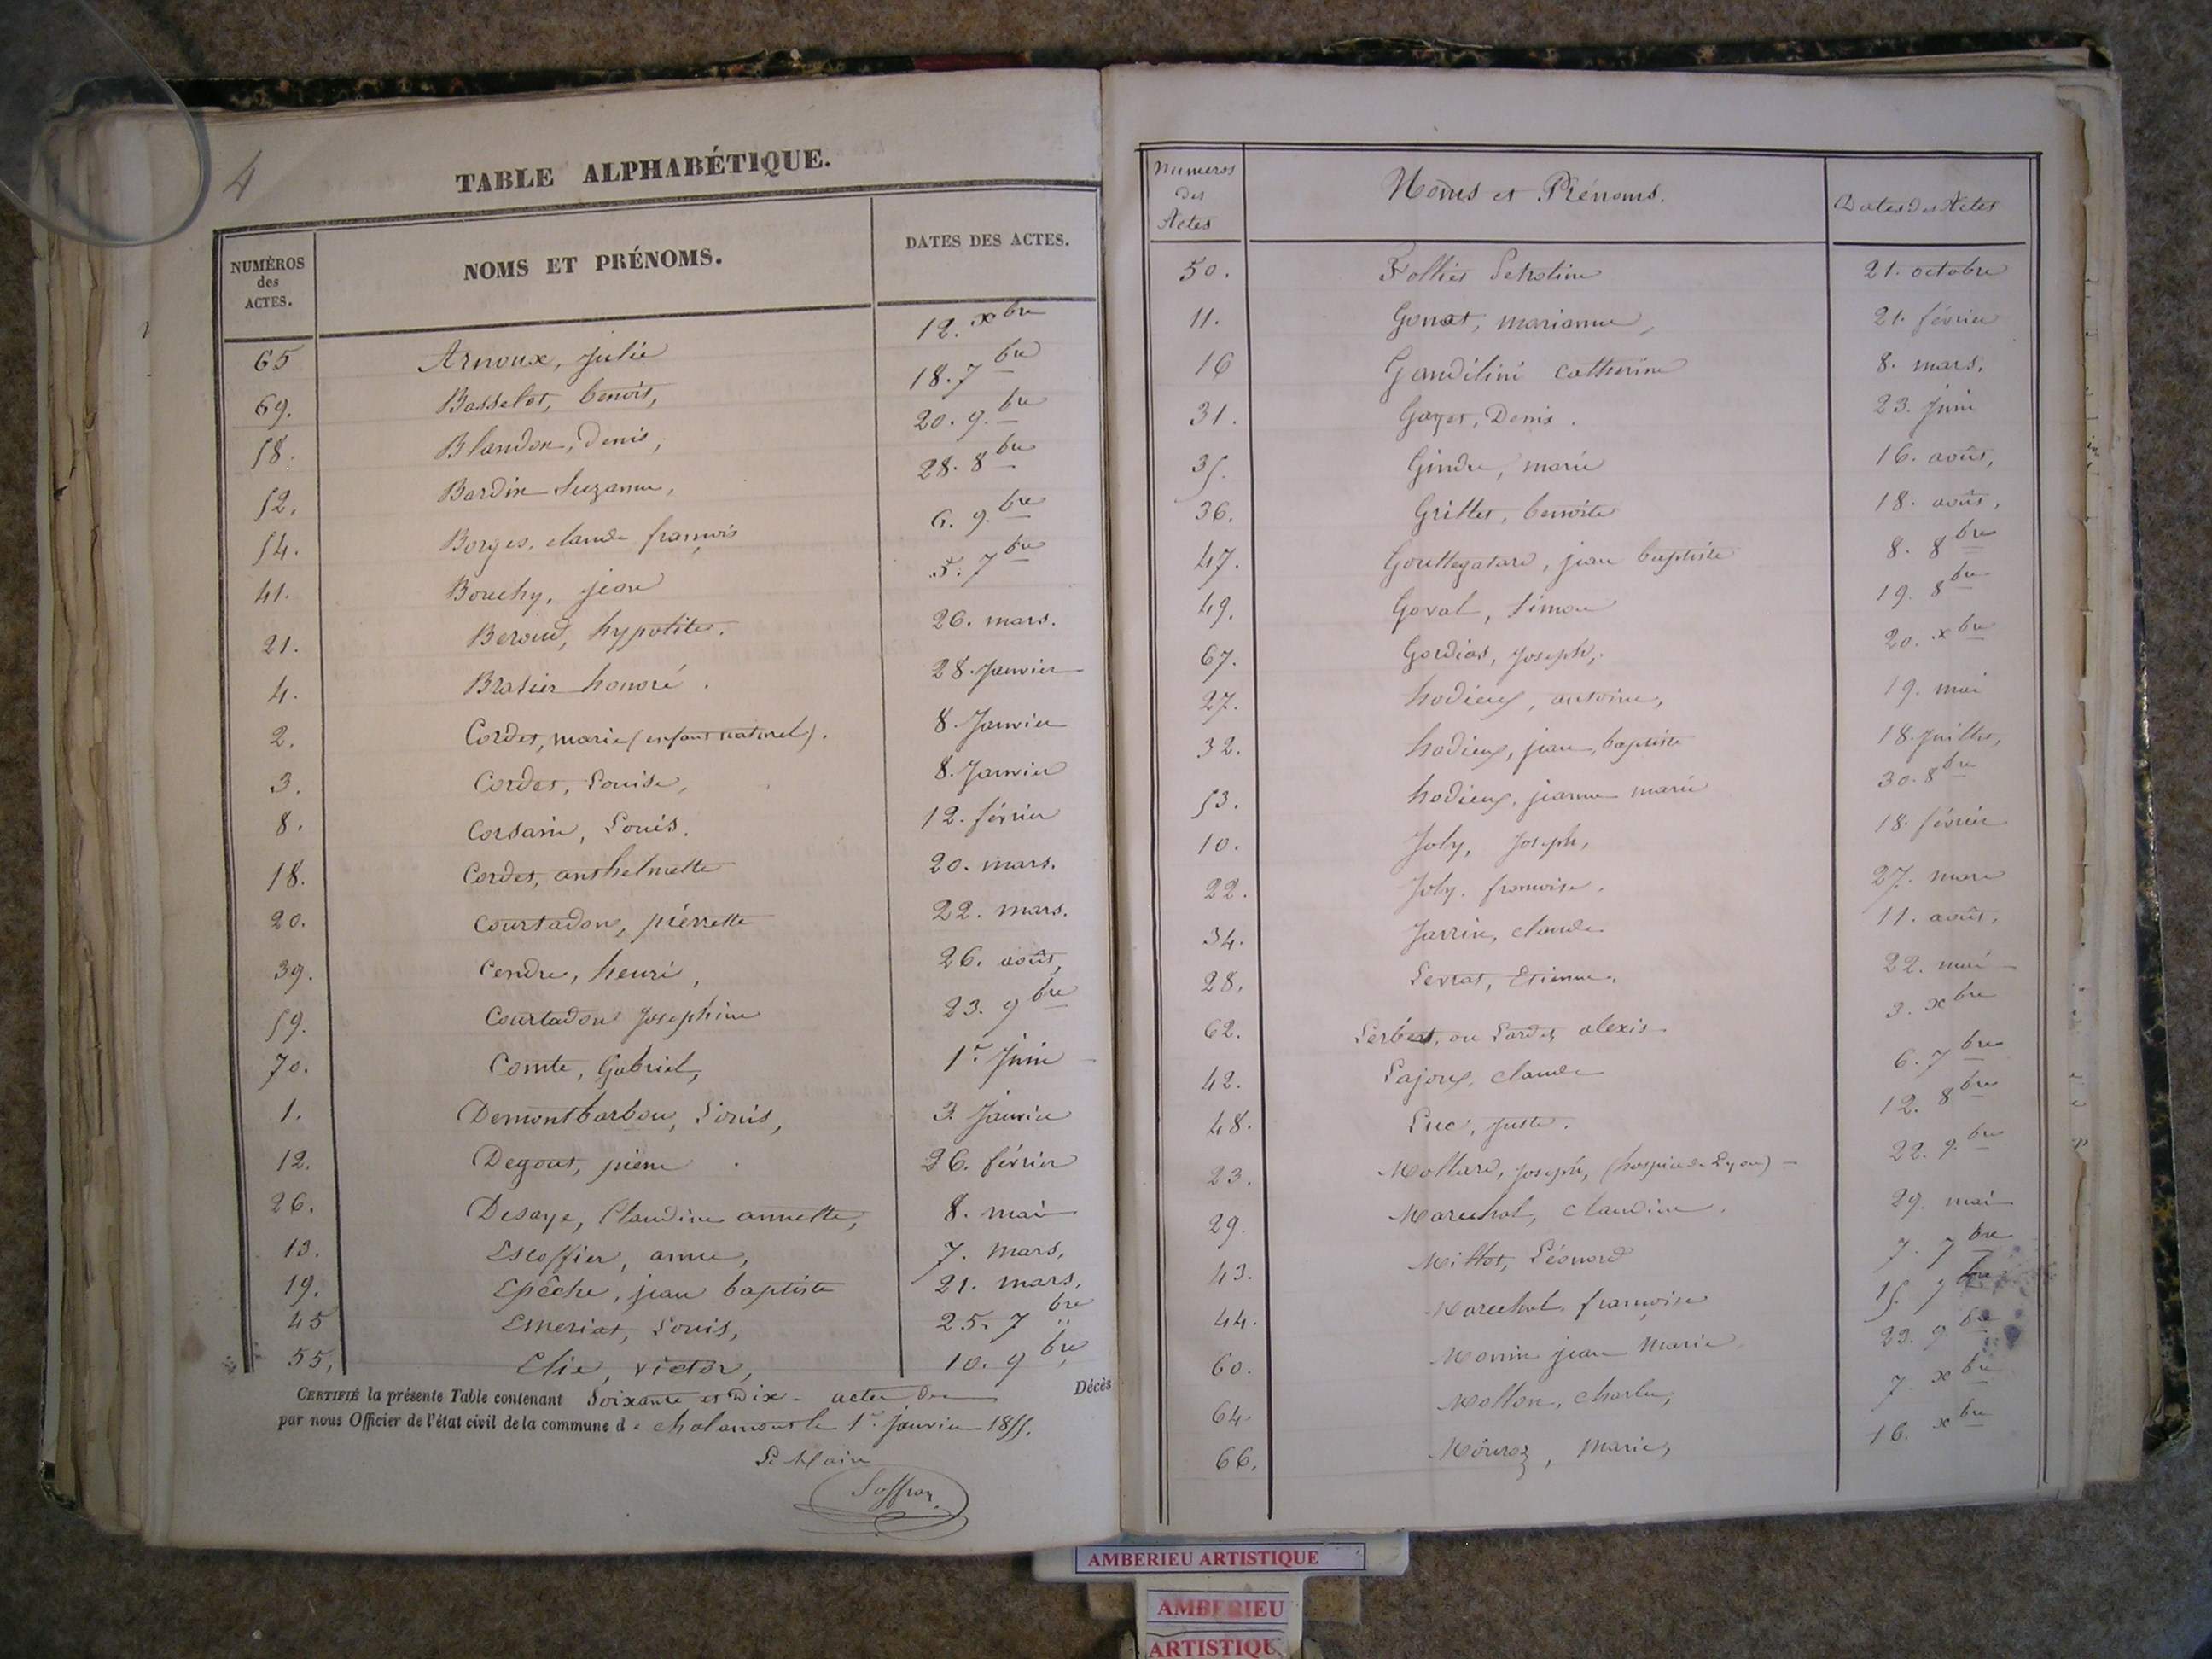 4
TABLE ALPHABÉTIQUE.
NUMÉROS des ACTES. NOMS ET PRÉNOMS. DATES DES ACTES.
65 Arnoux, Julie 12. xbre
69. Basselot, benoit, 18. 7bre
58. Blandon, Denis, 20. 9.bre
52. Bardin Suzanne, 28. 8bre
54. Borges, claude françois 6. 9.bre
41. Bouchy, jean 5. 7bre
21. Beroud, hypolite. 26. mars.
4. Brasier honoré. 28. Janvier
2. Cordet, marie (enfant naturel). 8. Janvier
3. Cordet, Louise, 8. Janvier
8. Corsain, Louis. 12. février
18. Cordet, anthelmette 20. mars.
20. Courtadon, pierrette 22. mars.
39. Cendre, henri, 26. août,
59. Courtadon Josephine 23. 9bre
70. Comte, Gabriel, 1er Juin
1. Demontbarbon, Louis, 3. Janvier
12. Degout, pierre 26. février
26. Desaye, Claudine annette, 8. mai
13. Escoffier, anne, 7. mars,
19. Epêche, jean baptiste 21. mars,
45 Emeriat, Louis, 25. 7bre
55, Elie, victor, 10. 9bre
CERTIFIÉ la présente Table contenant Soixante et Dix - actes de Décès
par nous Officier de l'état civil de la commune de chalamont le 1er Janvier 1855.
Le Maire
Numeros des Actes Noms et Prénoms. Dates des Actes
50. Follies 21. octobre
11. Gonat, marianne, 21. février
16 Gandilini catherine 8. mars,
31. Gayet, Denis. 23. Juin
35. Gindre, marie 16. août,
36. Grillet, benoite 18. août,
47. Gouttegatard, jean baptiste 8. 8bre
49. Goval, Simon 19. 8bre
67. Gordias, Joseph, 20. xbre
27. hodieux, antoine, 19. mai
32. hodieux, jean, baptiste 18. Juillet,
53. hodieux, jeanne marie 30. 8bre
10. Joly, Joseph, 18. février
22. Joly. francoise, 27. mars
34. Jarrin, claude 11. août,
28. Levrat, Etienne, 22. mai
62. ou Lardet alexis 3. xbre
42. Lajoux, claude 6. 7bre
48. Luc, Juste. 12. 8bre
23. Mollard, Joseph, (hospice de Lyon) 22. 9.bre
29. Marechal, claudine. 29. mai
43. Millot, Léonard 7. 7bre
44. Marechal, françoise 15. 7bre
60. Monin jean Marie 23. 9bre
64 Mollon, Charles, 7 xbre
66. Mouroz, Marie, 16. xbre
AMBERIEU ARTISTIQUE
AMBERIEU
ARTISTIQU